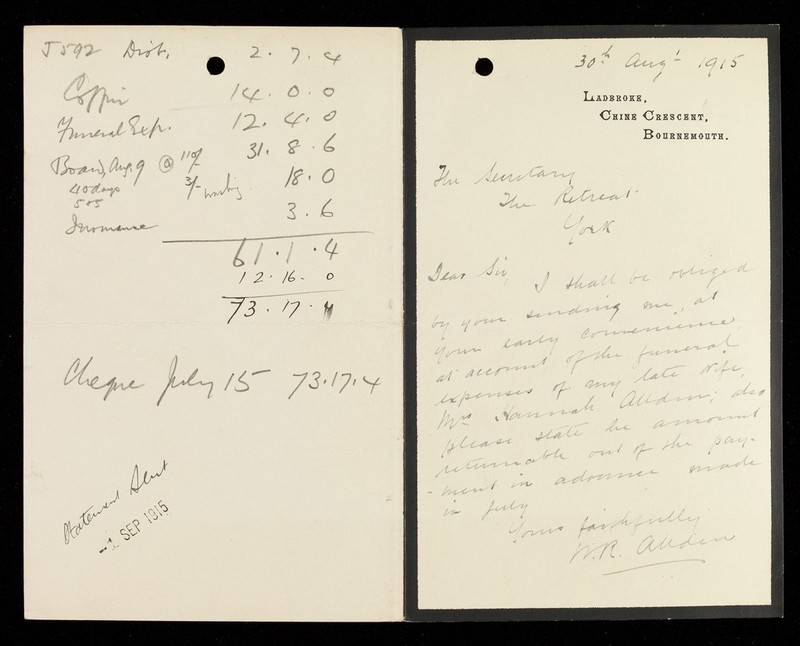 J592 Disb. 2. 7. 4
Coffin 14. 0. 0
Funeral Exp. 12. 4. 0
Board, Aug. 9 @ 110/ 31. 8. 6
40 days 3/- 18. 0
505
3. 6
61. 1. 4
12. 16. 0
73. 17. 4
Cheque July 15 73.17.4
Statement Sent
-1 SEP 1915
30th Augt 1915
LADBROKE,
CHINE CRESCENT,
BOURNEMOUTH.
The Secretary
The Retreat
York
Dear Sir, I shall be obliged
by your sending me, at
your early convenience
an account of the funeral
expenses of my late wife,
Mrs Hannah Alldin; also
please state the amount
returnable out of the pay-
-ment in advance made
in July
Yours faithfully
W.R. Alldin